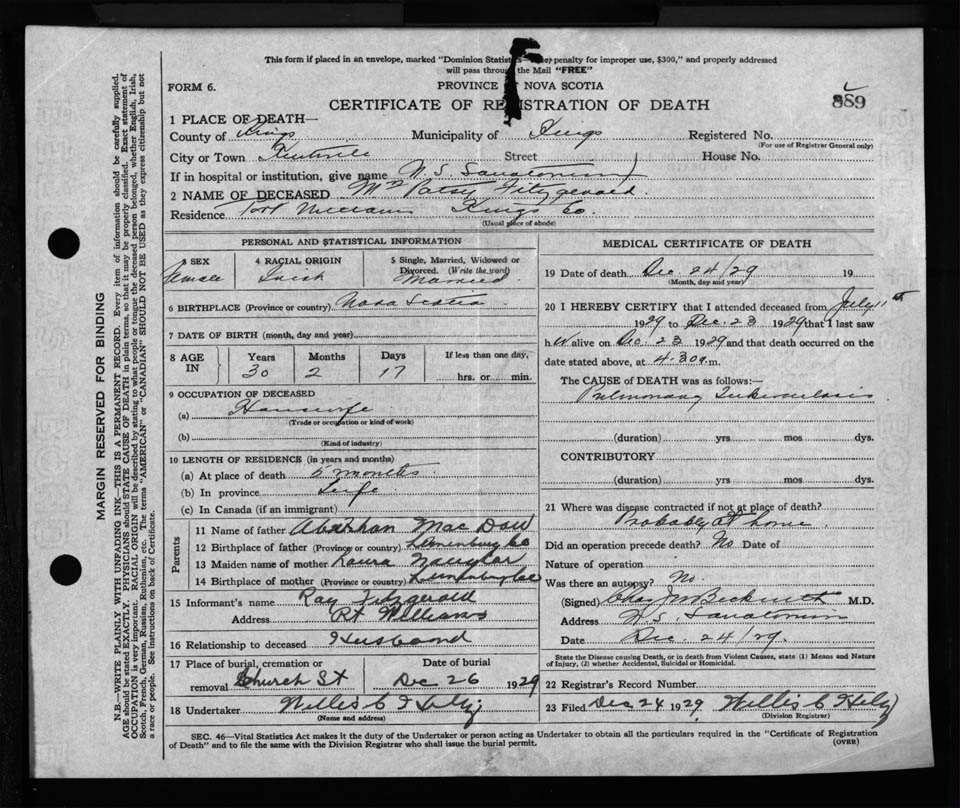 This form if placed in an envelope, marked "Dominion Statistics penalty for improper use, $300," and properly addressed
will pass through the Mail "FREE"
FORM 6.
PROVINCE OF NOVA SCOTIA
889
CERTIFICATE OF REGISTRATION OF DEATH
1 PLACE OF DEATH—
County of Kings Municipality of Kings Registered No.
(For use of Registrar General only)
City or Town Kentville Street House No.
If in hospital or institution, give name N. S. Sanatorium
2 NAME OF DECEASED Mrs Patsy Fitzgerald
Residence Port Williams Kings Co.
(Usual place of abode)
PERSONAL AND STATISTICAL INFORMATION
3 SEX 4 RACIAL ORIGIN 5 Single, Married, Widowed or
Divorced. (Write the word)
Female Irish Married
6 BIRTHPLACE (Province or country) Nova Scotia
7 DATE OF BIRTH (month, day and year)
8 AGE IN Years Months Days If less than one day,
30 2 17 hrs. or min.
9 OCCUPATION OF DECEASED
(a) Housewife
(Trade or occupation or kind of work)
(b)
(Kind of industry)
10 LENGTH OF RESIDENCE (in years and months)
(a) At place of death 5 months
(b) In province Life
(c) In Canada (if an immigrant)
Parents
11 Name of father Abraham MacDow
12 Birthplace of father (Province or country) Lunenburg Co
13 Maiden name of mother Laura Naugler
14 Birthplace of mother (Province or country) Lunenburg Co
15 Informant's name Ray Fitzgerald
Address Pt Williams
16 Relationship to deceased Husband
17 Place of burial, cremation or Date of burial
removal Church St Dec 26 1929
18 Undertaker Willis C
(Name and address)
MEDICAL CERTIFICATE OF DEATH
19 Date of death Dec 24/29 19
(Month, day and year)
20 I HEREBY CERTIFY that I attended deceased from July 1st
1929 to Dec 23 1929 that I last saw
her alive on Dec 23 1929 and that death occurred on the
date stated above, at 4.30 a.m.
The CAUSE of DEATH was as follows:—
Pulmonary Tuberculosis
(duration) yrs mos dys.
CONTRIBUTORY
(duration) yrs. mos dys.
21 Where was disease contracted if not at place of death?
Probably at home
Did an operation precede death? No Date of
Nature of operation
Was there an autopsy? No.
(Signed) Chas J M Beckwith M.D.
Address N. S. Sanatorium
Date Dec 24/29.
State the Disease causing Death, or in death from Violent Causes, state (1) Means and Nature
of Injury, (2) whether Accidental, Suicidal or Homicidal.
22 Registrar's Record Number
23 Filed Dec 24 1929, Willis C
(Division Registrar)
SEC. 46—Vital Statistics Act makes it the duty of the Undertaker or person acting as Undertaker to obtain all the particulars required in the "Certificate of Registration
of Death" and to file the same with the Division Registrar who shall issue the burial permit.
(OVER)
MARGIN RESERVED FOR BINDING
N.B.—WRITE PLAINLY WITH UNFADING INK—THIS IS A PERMANENT RECORD. Every item of information should be carefully supplied.
AGE should be stated EXACTLY. PHYSICIANS should STATE CAUSE OF DEATH in plain terms, so that it may be properly classified. Exact statement of
OCCUPATION is very important. RACIAL ORIGIN will be described by stating to what people or tongue the deceased person belonged, whether English, Irish,
Scotch, French, German, Russian, Ruthenian, etc. The terms "AMERICAN" or "CANADIAN" SHOULD NOT BE USED as they express citizenship but not
a race or people. See instructions on back of Certificate.